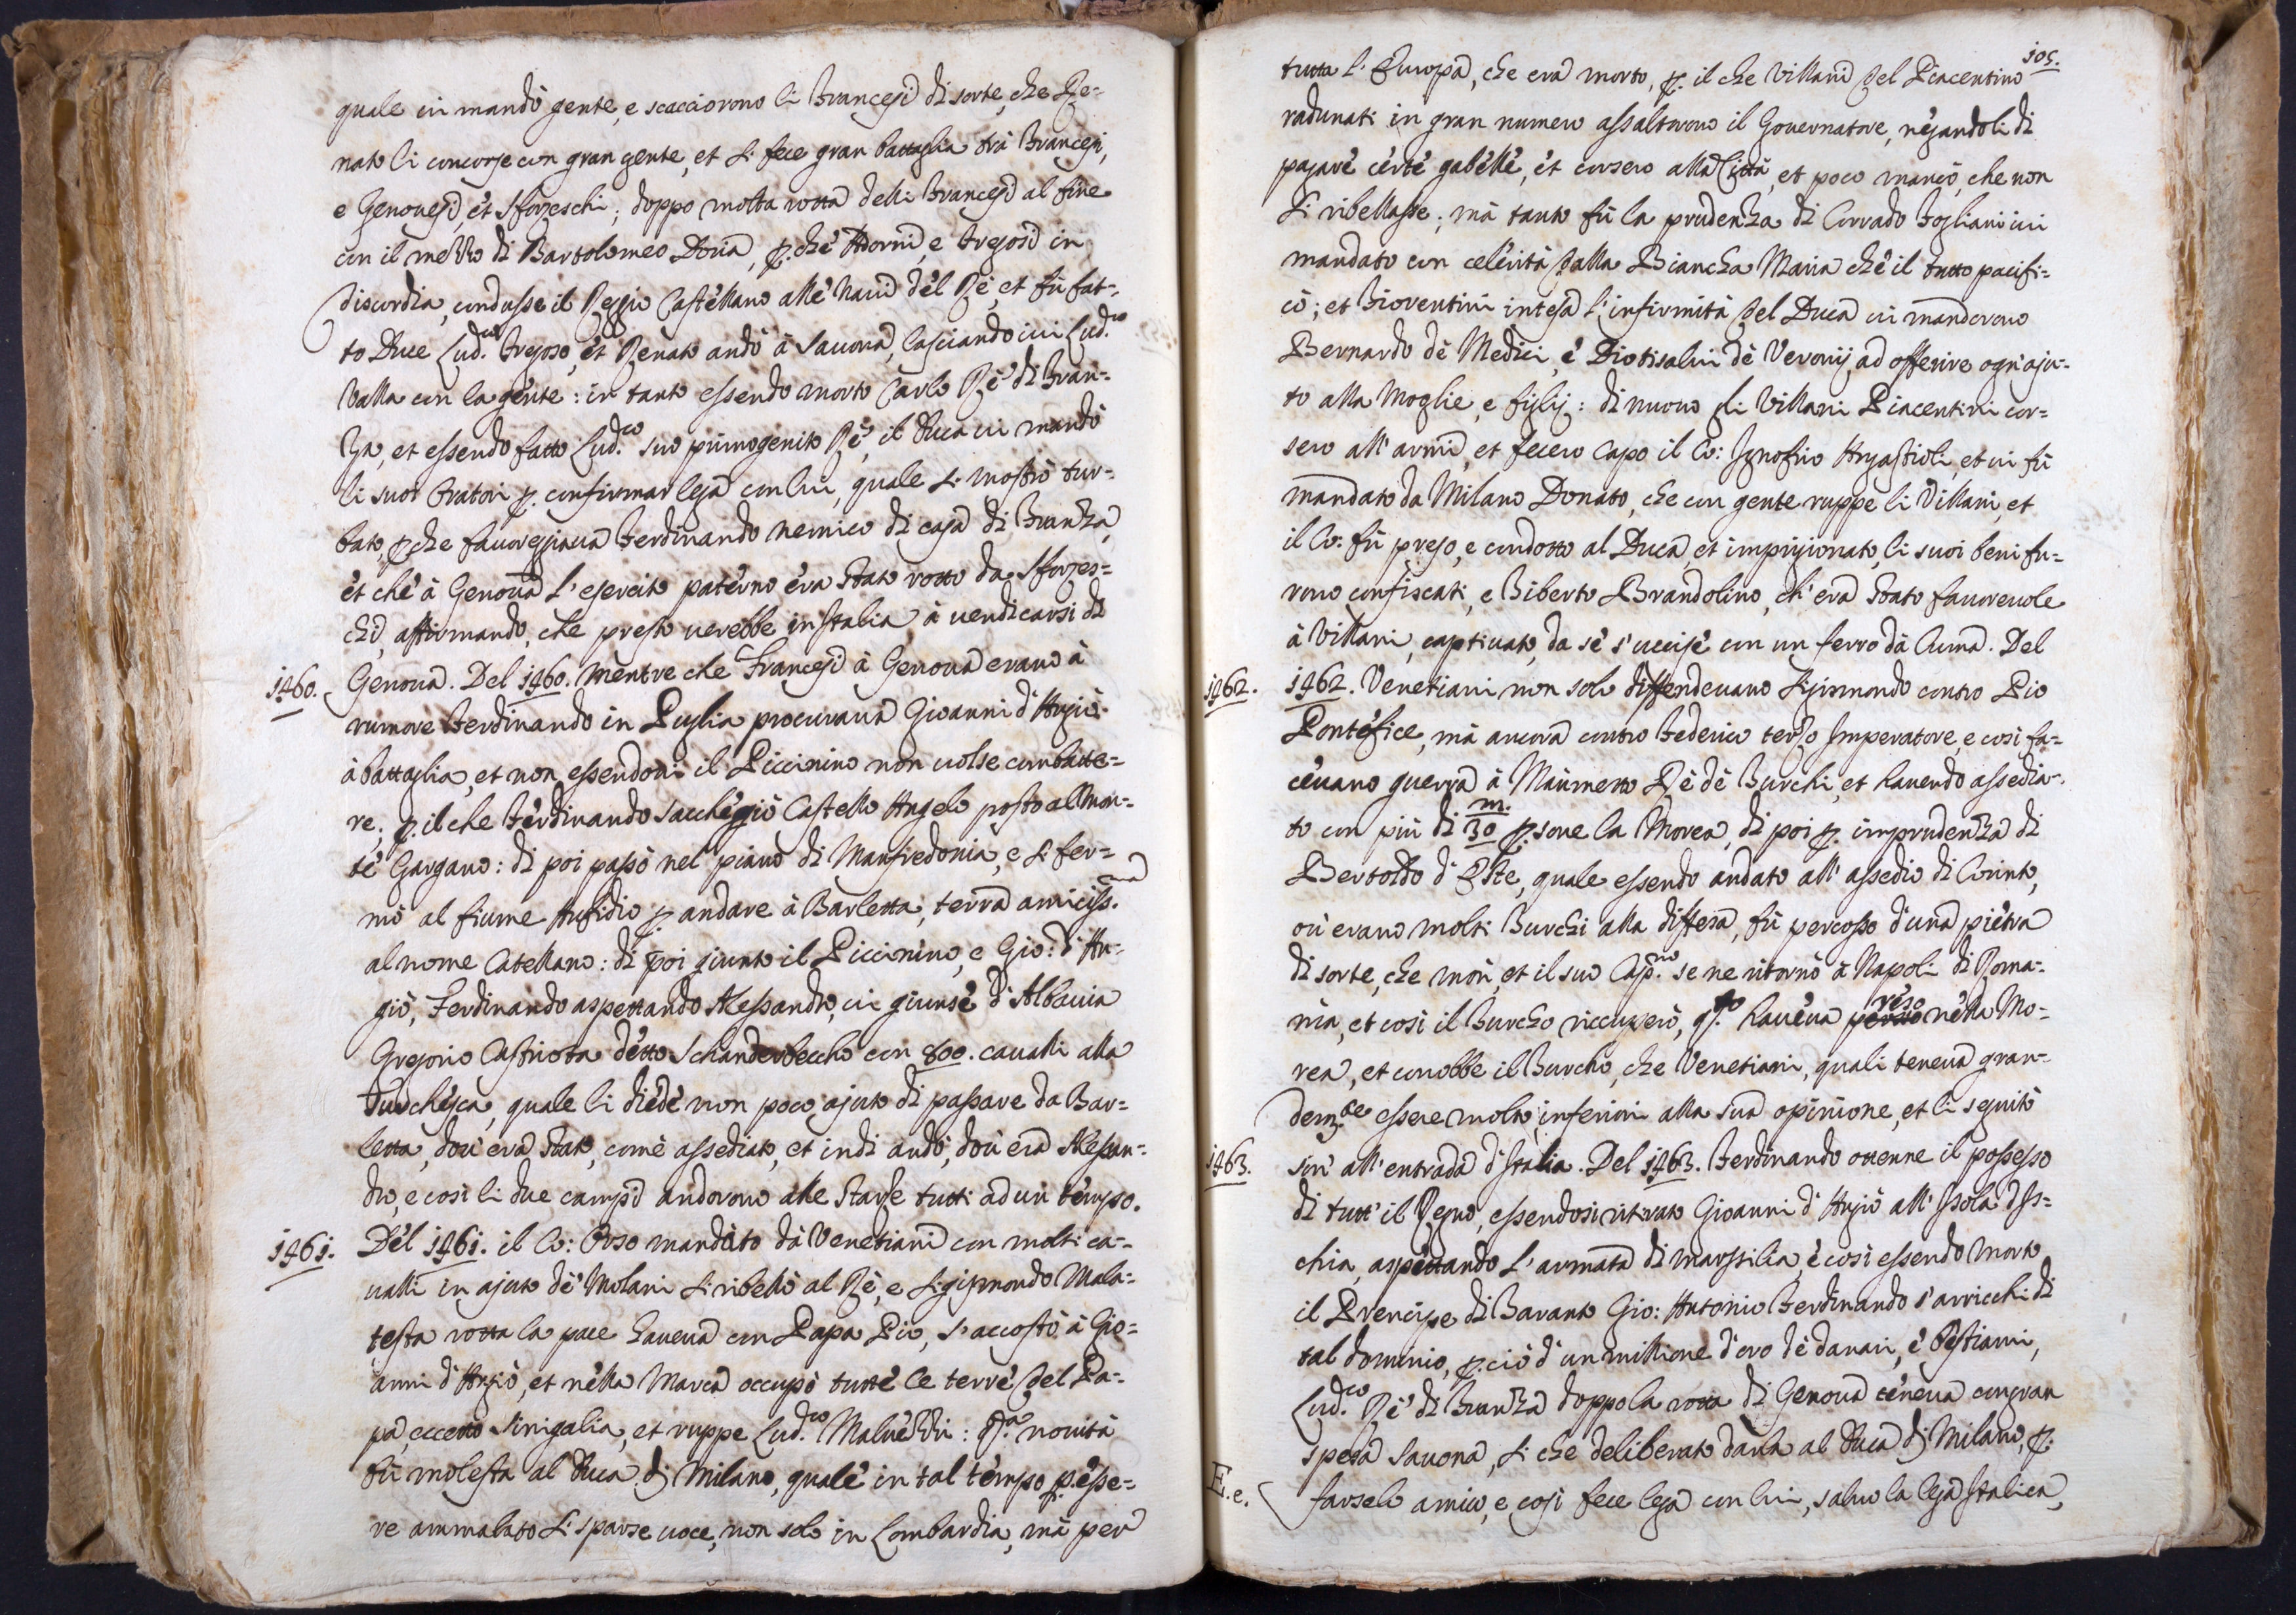 quale iui mandò gente, e scacciorono li Francesi di sorte, che Re=
nato li concorse con gran gente, et si fece gran battaglia trà Francesi,
e Genouesi, et Sforzeschi; doppo molta rotta delli Francesi al fine
con il mezzo di Bartolomeo Doria, p. chè Adorni, e Fregosi in
discordia, condusse il Reggio Castellano alle Naui del Rè, et fù fat=
to Duce Lud.co Fregoso, et Renato andò à Sauona, lasciando iui Lud.co
Valla con la gente: in tanto essendo morto Carlo Rè di Fran=
za, et essendo fatto Lud.co suo primogenito Rè, il Duca iui mandò
li suoi Oratori p. confirmar lega con lui, quale si mostrò tur=
bato, p. che fauoreggiaua Ferdinando nemico di casa di Franza,
et chè à Genoua l'esercito paterno era stato rotto da Sforzes=
chi, affirmando, che presto uerebbe in Italia à uendicarsi di
1460. Genoua. Del 1460. mentre che Francesi à Genoua erano à
rumore Ferdinando in Puglia procuraua Gioanni d'Angiò
à battaglia, et non essendoui il Piccinino non uolse combatte=
re; p. il che Ferdinando saccheggiò Castello Angelo posto al Mon=
te Gargano: di poi passò nel piano di Manfredonia, e si fer=
mò al fiume Aufidio p. andare à Barletta, terra amiciss.ma
al nome Catellano: di poi giunto il Piccinino, e Gio: d'An=
giò, Ferdinando aspettando Alessandro, iui giunse d'Albania
Gregorio Castriota detto Schanderbeccho con 800. caualli alla
Turchesca, quale li diede non poco ajuto di passare da Bar=
letta, dou'era stato, come assediato, et indi andò, dou'era Alessan=
dro, e così li due campi andorono alle Stanze tutti ad un tempo.
1461. Del 1461. il Co: Orso mandato da Venetiani con molti ca=
ualli in ajuto de' Nolani si ribellò al Rè, e Sigismondo Mala=
testa rotta la pace haueua con Papa Pio, s'accostò à Gio=
anni d'Angiò, et nella Marca occupò tutte le terre del Pa=
pa, eccetto Sinigalia, et ruppe Lud.co Maluezzi: q.ta nouità
fù molesta al Duca di Milano, quale in tal tempo p. esse=
re ammalato si sparse uoce, non solo in Lombardia, mà per
105.
tutta l'Europa, che era morto, p. il che Villani del Piacentino
radunati in gran numero assaltorono il Gouernatore, negandoli di
pagare certe gabelle, et corsero alla Città, et poco mancò, che non
si ribellasse; mà tanto fù la prudenza di Corrado Fogliani iui
mandato con celerità dalla Biancha Maria che il tutto pacifi=
cò; et Fiorentini intesa l'infirmità del Duca iui mandorono
Bernardo de Medici, e Diotisalui de Neronij, ad offerire ogn'aju=
to alla Moglie, e figlij: di nuouo gli Villani Piacentini cor=
sero all'armi, et fecero Capo il Co: Ignofrio Angastioli, et iui fù
mandato da Milano Donato, che con gente ruppe li Villani, et
il Co: fù preso, e condotto al Duca, et imprigionato, li suoi beni fu=
rono confiscati, e Tiberto Brandolino, ch'era stato fauoreuole
à Villani, captiuato, da sè s'uccise con un ferro dà lume. Del
1462. 1462. Venetiani non solo diffendeuano Sigismondo contro Pio
Pontefice, mà ancora contro Federico terzo Imperatore, e così fa=
ceuano guerra à Maumetto Rè de Turchi, et hauendo assedia=
to con più di 30 m. p.sone la Morea, di poi p. imprudenza di
Bertoldo d'Este, quale essendo andato all'assedio di Corinto,
ou'erano molti Turchi alla diffesa, fù percosso d'una pietra
di sorte, che morì, et il suo Cap.no se ne ritornò à Napoli di Roma=
nia, et così il Turcho riccuperò, q.to haueua perso reso nella Mo=
rea, et conobbe il Turcho, che Venetiani, quali teneua gran=
dem.te essere molto inferiori alla sua opinione, et li seguitò
1463. sin'all'entrada d'Italia. Del 1463. Ferdinando ottenne il possesso
di tutt'il Regno, essendosi ritirato Gioanni d'Angiò all'Isola d'Is=
chia, aspettando l'armata di marssilia, e così essendo morto
il Prencipe di Taranto Gio: Antonio Ferdinando s'arricchì di
tal dominio, p. ciò d'un millione d'oro de danari, e bestiami,
Lud.co Rè di Franza doppo la rotta di Genoua teneua con gran
spesa Sauona, si che deliberato darla al Duca di Milano, p.
farselo amico, e così fece lega con lui, saluo la lega Italica,
E.e.